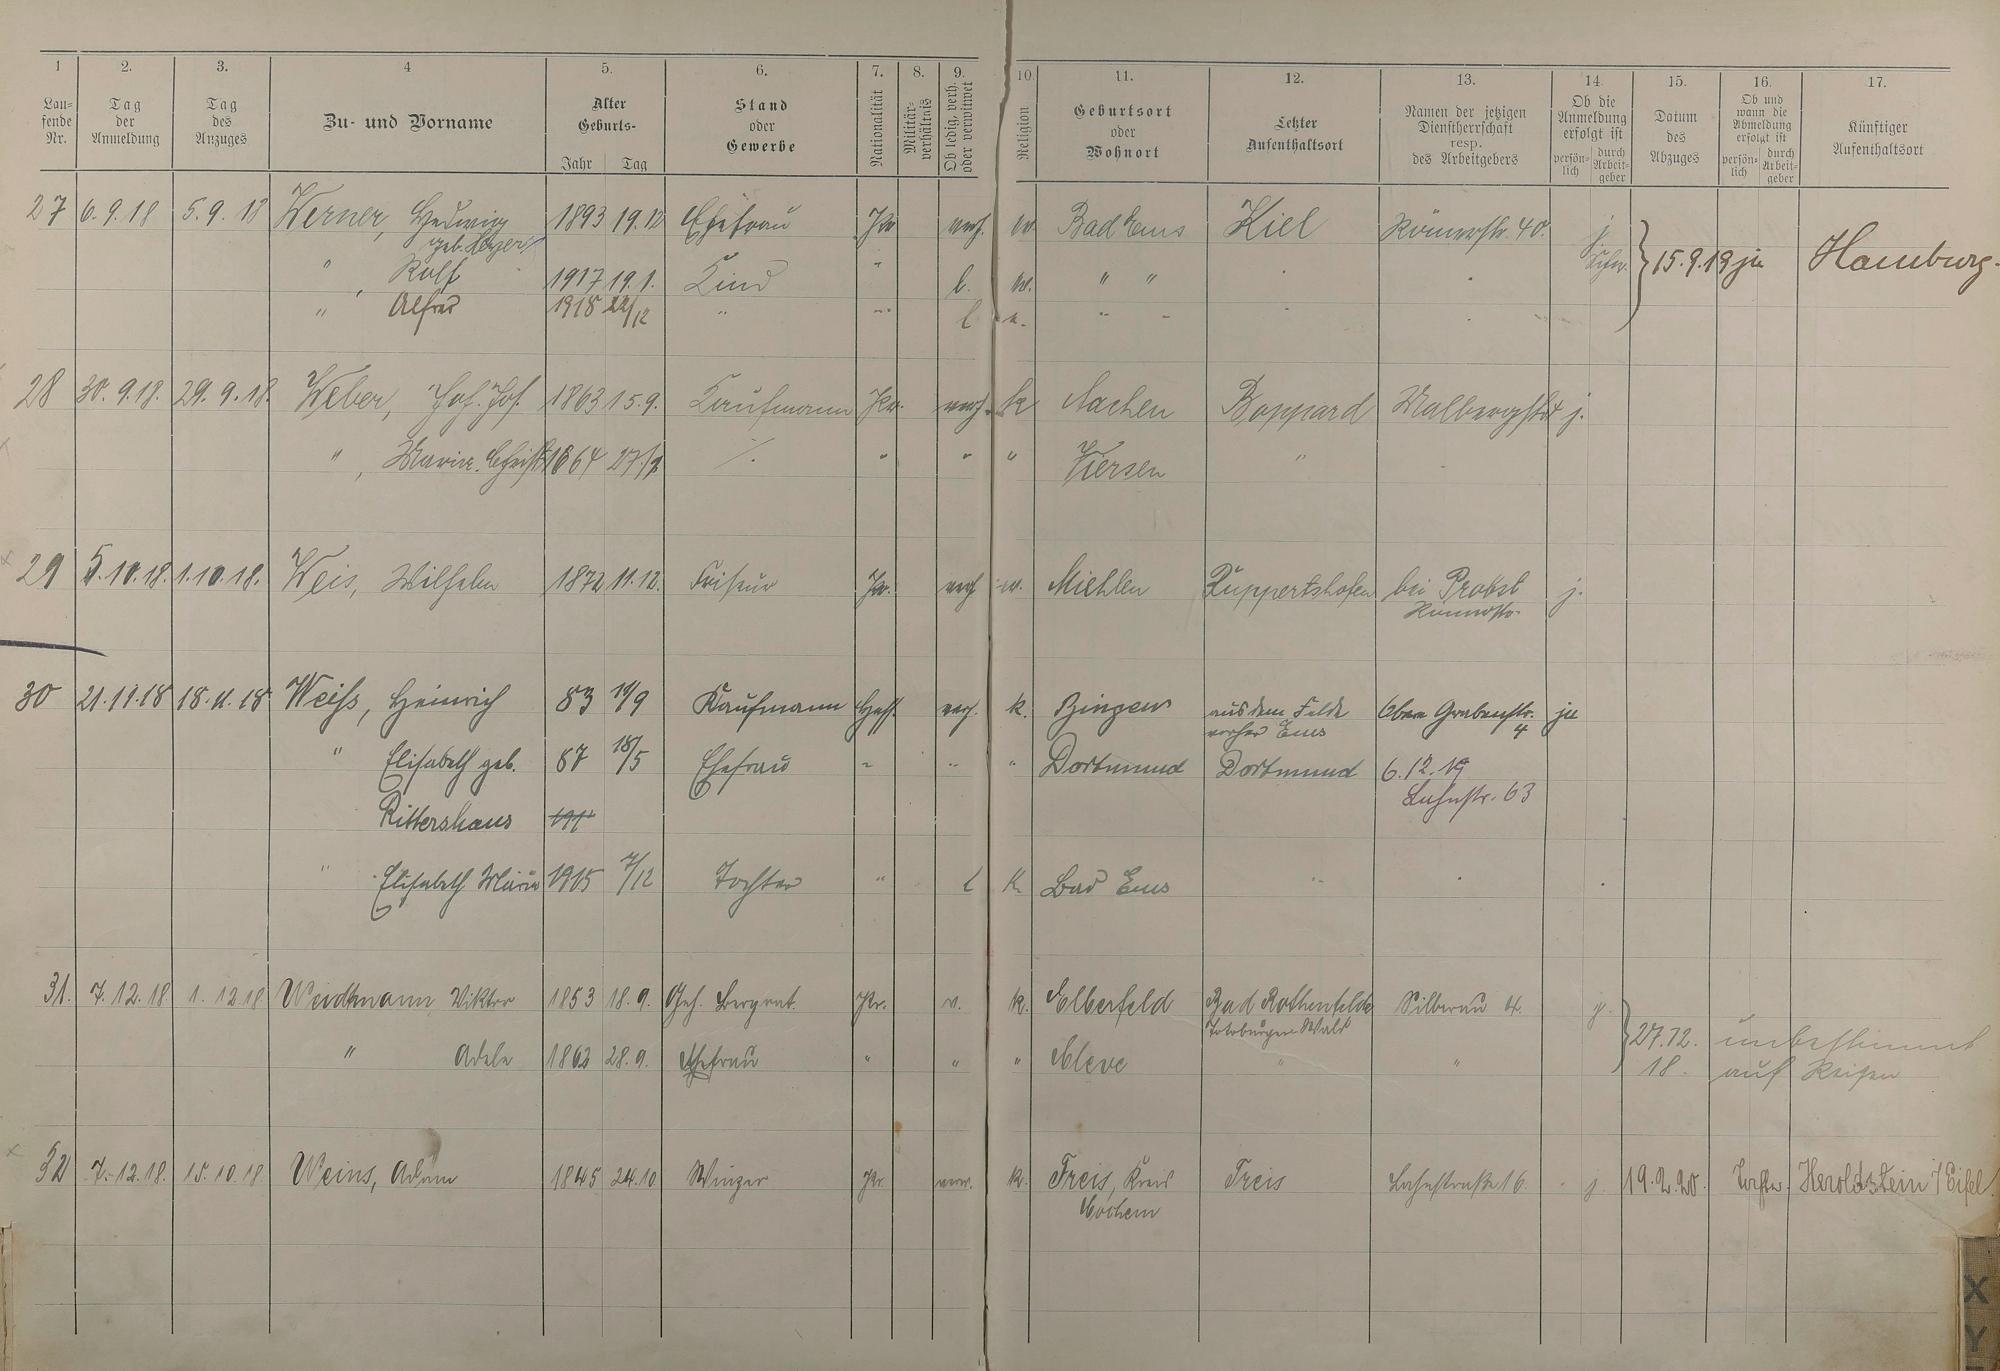 1 2. 3. 4 5. 6. 7. 8. 9. 10. 11. 12. 13. 14. 15. 16. 17.
Lau-
fende
Nr.
Tag
der
Anmeldung
Tag
des
Anzuges
Zu- und Vorname
Alter
Geburts-
Jahr Tag
Stand
oder
Gewerbe
Nationalität
Militär-
verhältnis
Ob ledig, verh.
oder verwitwet
Religion
Geburtsort
oder
Wohnort
Letzter
Aufenthaltsort
Namen der jetzigen
Dienstherrschaft
resp.
des Arbeitgebers
Ob die
Anmeldung
erfolgt ist
persön-
lich
durch
Arbeit-
geber
Datum
des
Abzuges
Ob und
wann die
Abmeldung
erfolgt ist
persön-
lich
durch
Arbeit-
geber
Künftiger
Aufenthaltsort
27 6.9.18 5.9.18 Werner, Hedwig 1893 19.12 Ehefrau Pr verh. Bad Ems Kiel Römerstr. 40. j
geb.
" Rolf 1917 19.1. Kind " l. " " 15.9.19 ja Hamburg.
" Alfred 1918 22/12 " l " "
28 30.9.18. 29.9.18. Weber, Jos. 1863 15.9. Kaufmann Pr. verh. k Aachen Boppard Malbergstr j.
" 1864 " " " Viersen "
29 5.10.18. 1.10.18. Weis, Wilhelm 1872 11.12. Friseur Pr. verh Miehlen Ruppertshofen bei Probst j.
Römerstr.
30 21.11.18 18.11.18 Weiss, Heinrich 83 Kaufmann Hess. verh. k. Bingen aus dem Felde Obere Grabenstr. ja
vorher Ems 4
" Elisabeth geb. 87 18/5 Ehefrau " " " Dortmund Dortmund 6.12.19
Rittershaus 191 Lahnstr. 63
" Elisabeth Maria 1915 7/12 Tochter " l k. Bad Ems "
31. 7.12.18 1.12.18 Weidtmann, Viktor 1853 18.9. Geh. Bergrat Pr. v. k. Elberfeld Bad Rothenfelde Silberau 4. j.
Wald 27.12. unbestimmt
" Adele 1862 28.9. Ehefrau " " " Cleve " " 18. auf Reisen
32 7.12.18. 15.10.18 Weins, Adam 1845 24.10 Winzer Pr verw. k. Treis, Kreis Treis Lahnstraße 16. j. 19.2.20 Tochter. Heroldstein / Eifel.
Cochem
X
Y